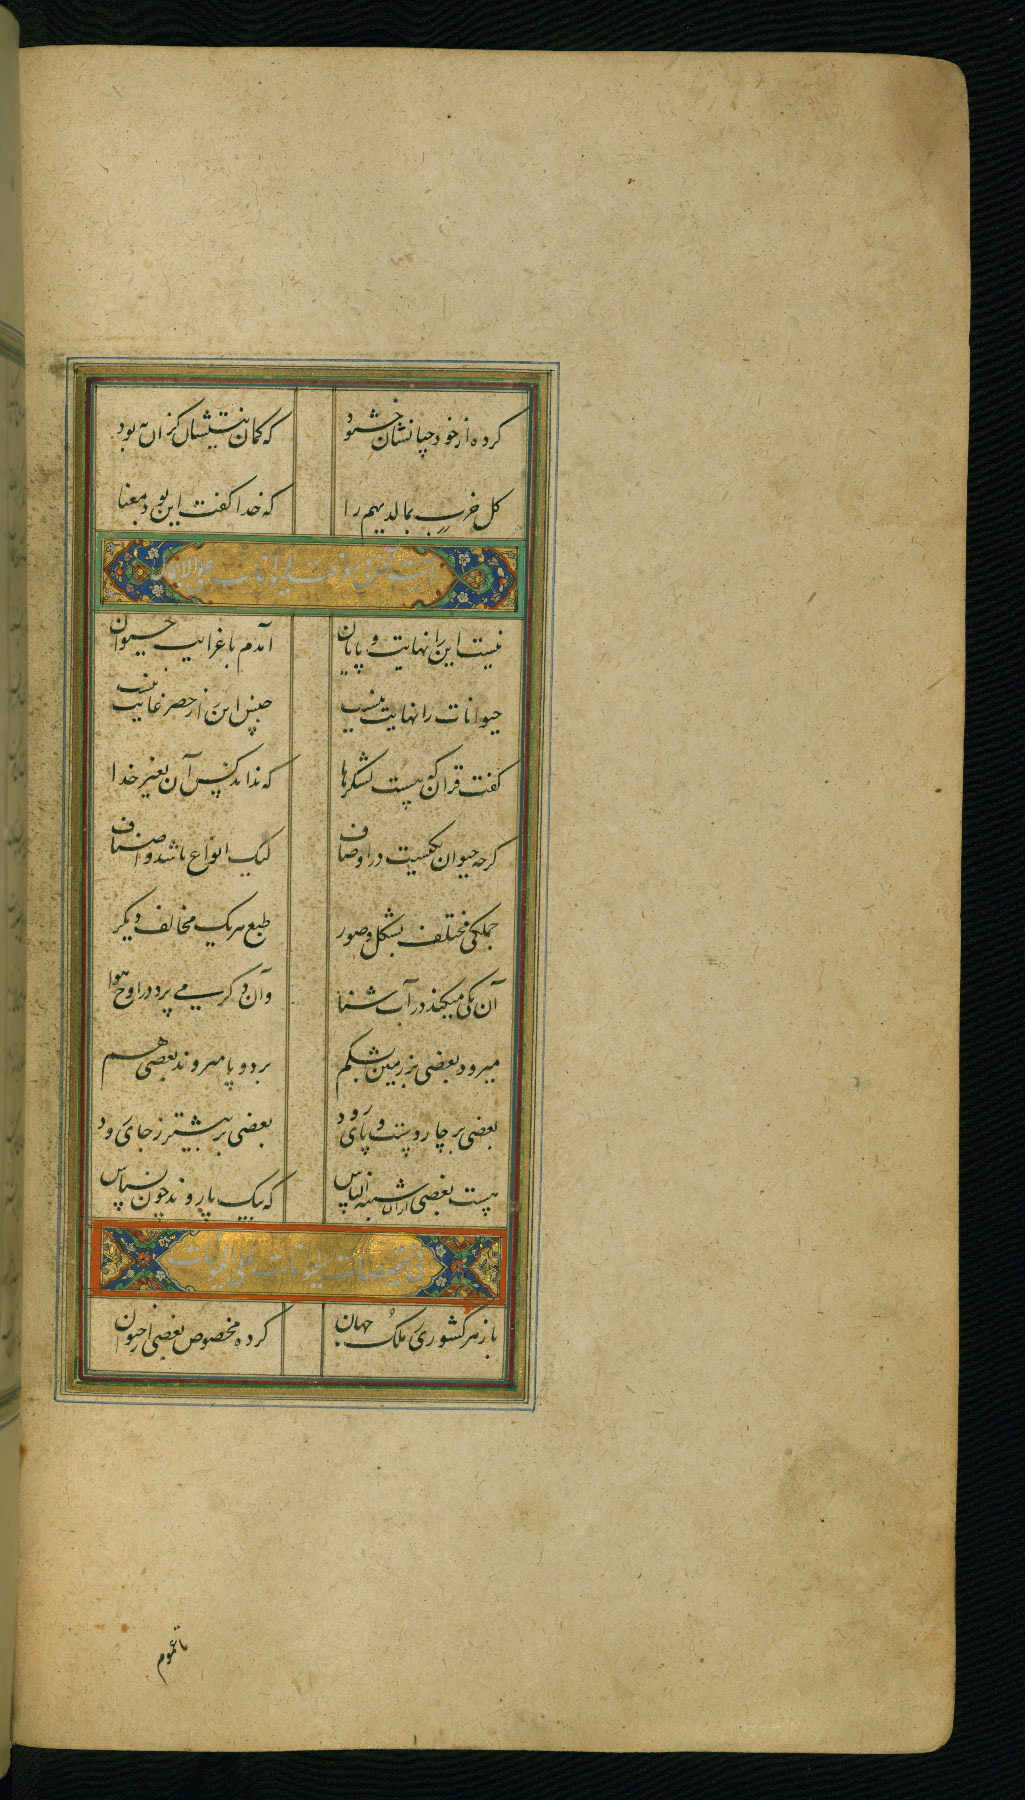 کرده از خود چنانشان خشنود که کمان نیستیشان کز ان به بود
کل حزب بما لدیهم را که خدا گفت این بود معنا
نیست این را نهایت و پایان آمدم با غرایب حیوان
حیوانات را نهایت نیست جنس این را ز حصر غایت نیست
گفت قران که هست لشکرها که نداند کس آن بغیر خدا
کرچه حیوان یکیست در اوصاف لیک انواع باشد و اصناف
جملکی مختلف بشکل و صور طبع هر یک مخالف دیکر
آن یکی میکند در آب شنا وآن دکر می پرد در اوج هوا
میرود بعضی بر زمین بشکم بر دو پا میروند بعضی هم
بعضی بر چار دست و پای رود بعضی بر بیشتر ز جای رود
هست بعضی ازان شبه الناس که بیک پا روند چون نسناس
باز هر کشوری ز ملک جهان کرده مخصوص بعضی از حیوان
تا عموم